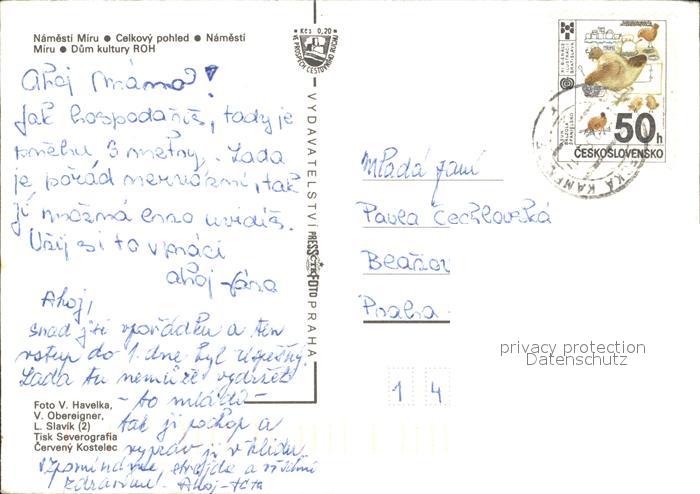 Náměstí Míru ● Celkový pohled ● Náměstí
Míru ● Dům kultury ROH
Kčs 0,20
VE PROSPĚCH CESTOVNÍHO RUCHU
Ahoj Mámo!
Jak hospodaříš, tady je
sněhu 3 metry. Lada
je pořád nervózní, tak
jí možná brzo uvidíš.
Užij si to v práci
ahoj Jára
Ahoj,
snad jsi vpořádku a ten
vstup do 1. dne byl úspěšný.
Lada tu nemůže vydržet
- to mládí -
tak ji pochop a
vyprav ji v klidu.
Vzpomínáme, strejda a
zdravíme. Ahoj - táta
Foto V. Havelka,
V. Obereigner,
L. Slavík (2)
Tisk Severografia
Červený Kostelec
VYDAVATELSTVÍ PRESSFOTO PRAHA
XI BIENÁLE ILUSTRÁCIÍ BRATISLAVA
ŠPANIELSKO
50h
ČESKOSLOVENSKO
Mladá paní
Pavla Čechlovská
Praha
14
privacy protection
Datenschutz